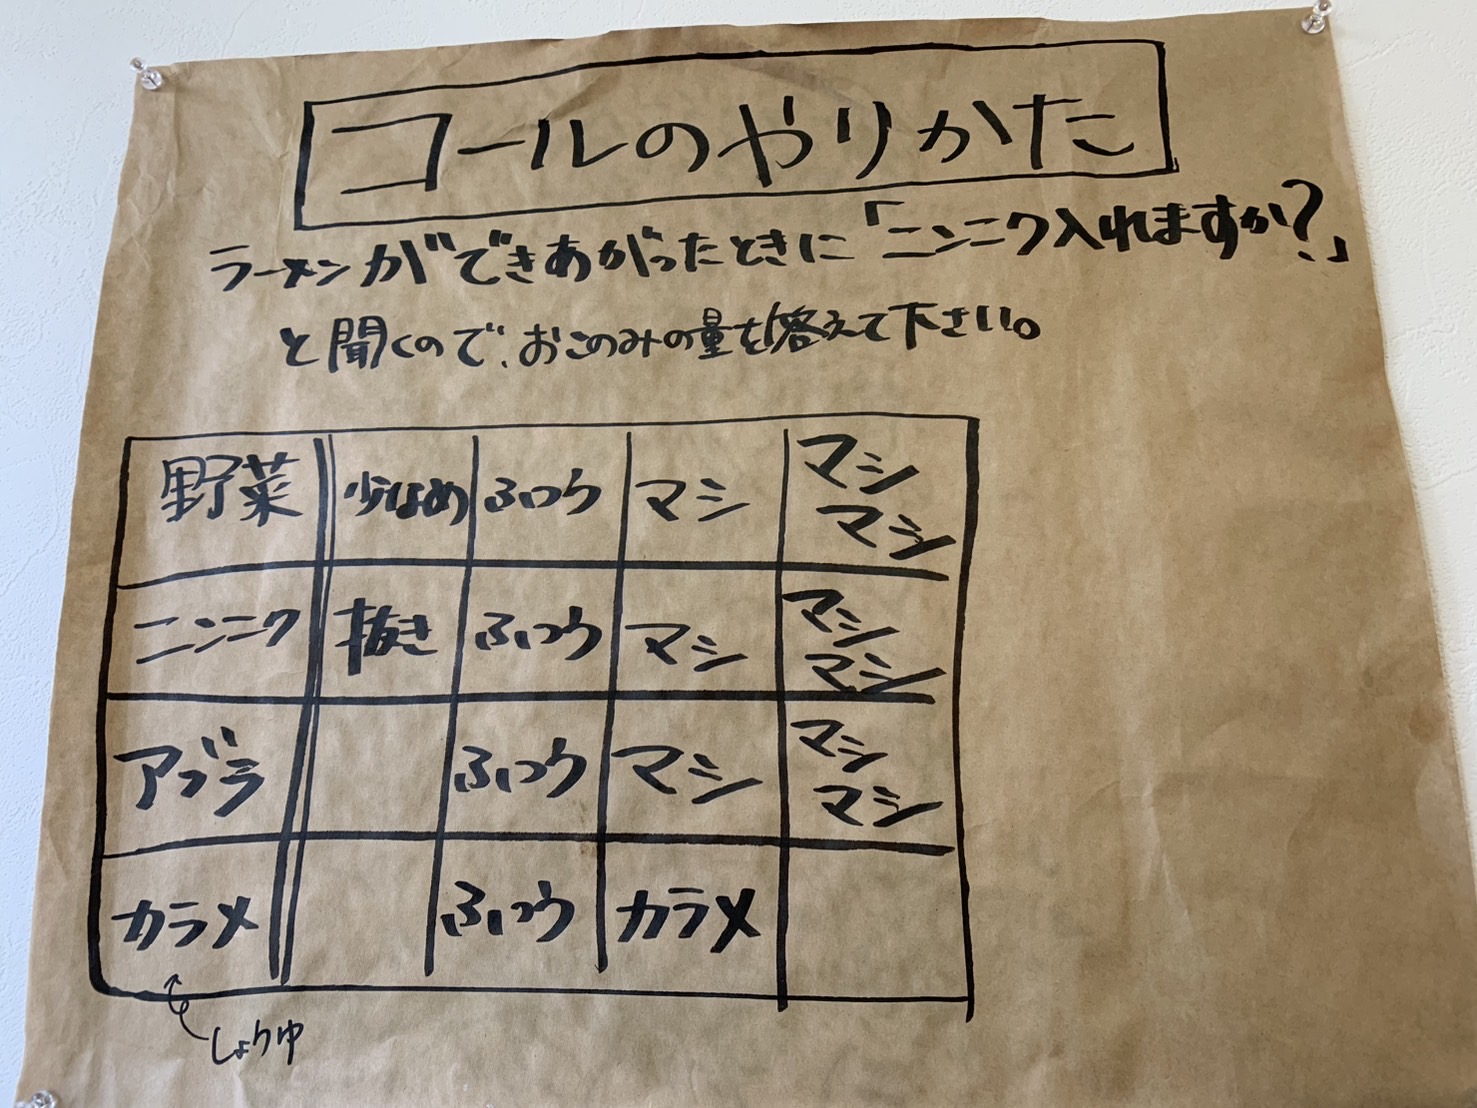 コールのやりかた
ラーメンができあがったときに「ニンニク入れますか?」
と聞くので、おこのみの量を答えて下さい。
野菜 少なめ ふつう マシ マシマシ
ニンニク 抜き ふつう マシ マシマシ
アブラ ふつう マシ マシマシ
カラメ ふつう カラメ
しょうゆ